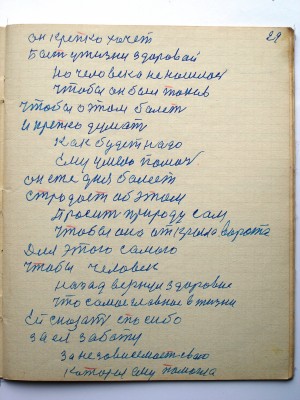 29
он крепко хочет
Быт у жизни здоровай
Но человека не нашлос
Чтобы он был таков
Чтобы о том болет
И крепко думат
Как будет надо
Ему умею помоч.
он сте дня болеет
Стродает об этом
Просит природу сам,
Чтобы оно открыла ворота
Для этого самого
Чтобы человек
Назад вернул здоровие
Что самое главное в жизни
Ей сказат спосибо
За ея заботу
За независемаст сваю
Которая ему помогла